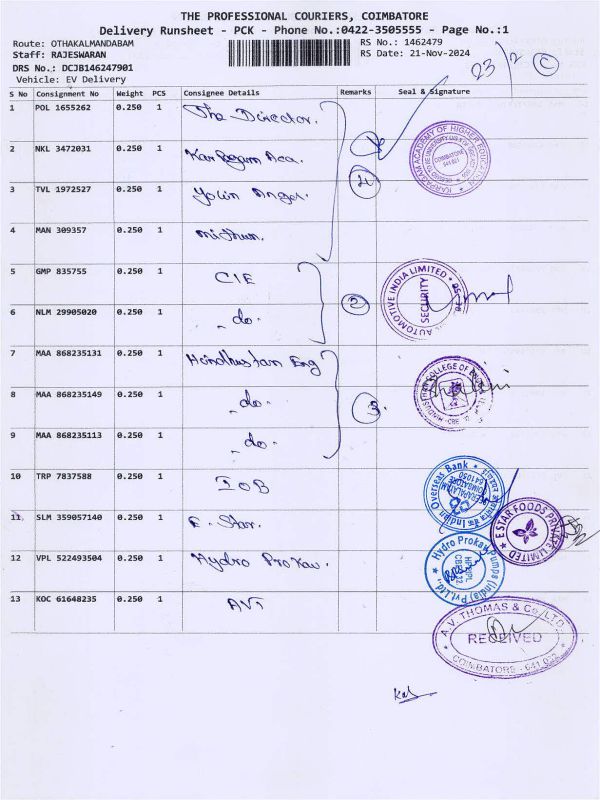 THE PROFESSIONAL COURIERS, COIMBATORE
Delivery Runsheet - PCK - Phone No.:0422-3505555 - Page No.:1
Route: OTHAKALMANDABAM
RS No.: 1462479
Staff: RAJESWARAN
RS Date: 21-Nov-2024
DRS No.: DCJB146247901
Vehicle: EV Delivery
23/2 C
S No Consignment No Weight PCS Consignee Details Remarks Seal & Signature
1 POL 1655262 0.250 1 The Director.
2 NKL 3472031 0.250 1 Karpagam Aca.
3 TVL 1972527 0.250 1
4
4 MAN 309357 0.250 1 mithun.
KARPAGAM ACADEMY OF HIGHER EDUCATION
COIMBATORE
641 021
5 GMP 835755 0.250 1 CIE
6 NLM 29905020 0.250 1 - do - 2
AUTOMOTIVE INDIA LIMITED
SECURITY
7 MAA 868235131 0.250 1 Hindhustan Eng
8 MAA 868235149 0.250 1 - do - 3.
9 MAA 868235113 0.250 1 - do -
10 TRP 7837588 0.250 1 IOB
Indian Overseas Bank
COIMBATORE
641050
11 SLM 359057140 0.250 1 E. Star.
ESTAR FOODS PRIVATE LIMITED
12 VPL 522493504 0.250 1 Hydro Prokav.
Hydro Prokav Pumps (India) Pvt. Ltd.
13 KOC 61648235 0.250 1 AVT
A.V. THOMAS & Co. LTD.
RECEIVED
COIMBATORE - 641 032